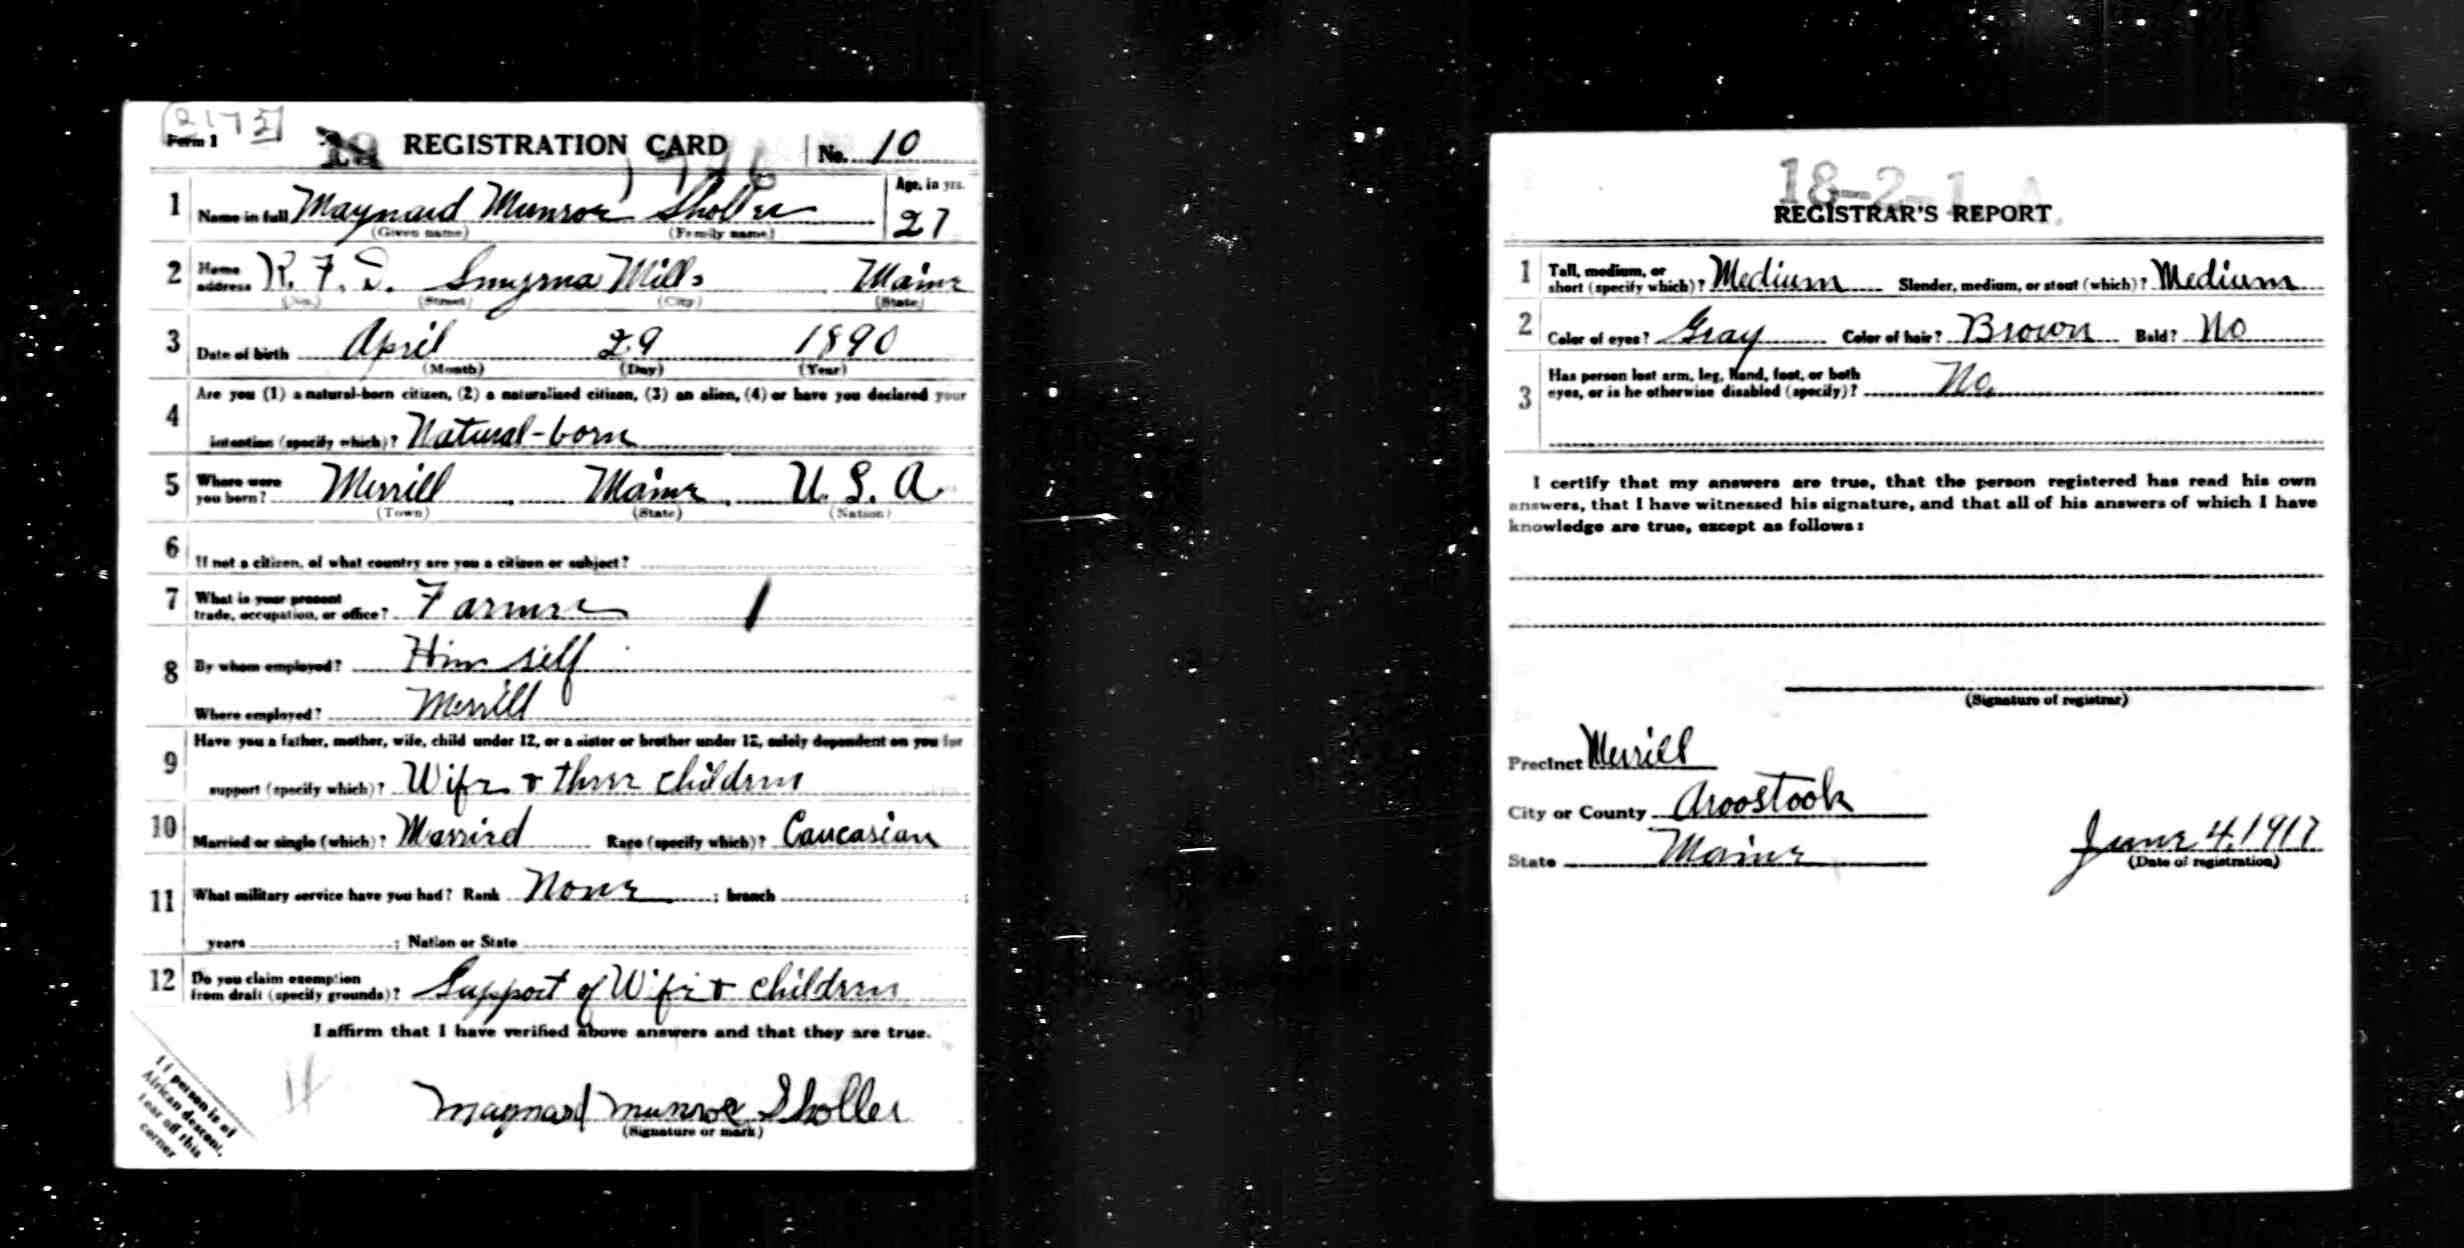 2175
Form 1
19 REGISTRATION CARD No. 10
1 Name in full Maynard Munroe Sholler Age, in yrs. 27
(Given name) (Family name)
2 Home address R. F. D. Smyrna Mills Maine
(No.) (Street) (City) (State)
3 Date of birth April 29 1890
(Month) (Day) (Year)
4 Are you (1) a natural-born citizen, (2) a naturalized citizen, (3) an alien, (4) or have you declared your
intention (specify which)? Natural-born
5 Where were you born? Merrill, Maine, U. S. A
(Town) (State) (Nation)
6 If not a citizen, of what country are you a citizen or subject?
7 What is your present
trade, occupation, or office? Farmer
8 By whom employed? Himself
Where employed? Merrill
9 Have you a father, mother, wife, child under 12, or a sister or brother under 12, solely dependent on you for
support (specify which)? Wife + three children
10 Married or single (which)? Married Race (specify which)? Caucasian
11 What military service have you had? Rank None ; branch ;
years ; Nation or State
12 Do you claim exemption
from draft (specify grounds)? Support of Wife + children
I affirm that I have verified above answers and that they are true.
Maynard Munroe Sholler
(Signature or mark)
If person is of
African descent,
tear off this
corner
18-2-1 A.
REGISTRAR'S REPORT
1 Tall, medium, or
short (specify which)? Medium Slender, medium, or stout (which)? Medium
2 Color of eyes? Gray Color of hair? Brown Bald? No
3 Has person lost arm, leg, hand, foot, or both
eyes, or is he otherwise disabled (specify)? No
I certify that my answers are true, that the person registered has read his own
answers, that I have witnessed his signature, and that all of his answers of which I have
knowledge are true, except as follows:
(Signature of registrar)
Precinct Merrill
City or County Aroostook
State Maine
June 4, 1917
(Date of registration)